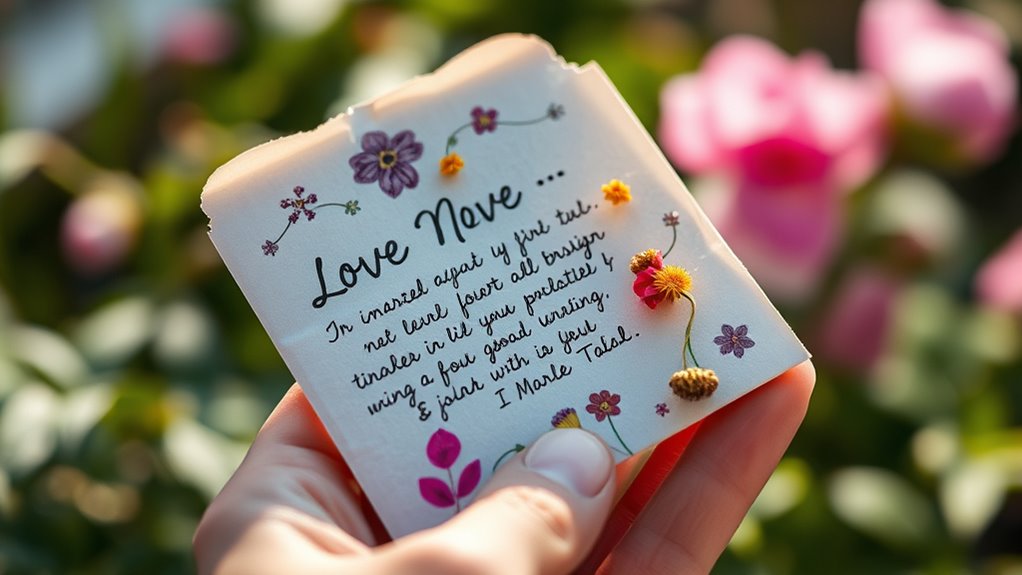 Love Neve ...
In inarted ayat y firl tul.
net levrl foret all brsign
tinales in lid you pretatel y
wing a four good wrting.
& jolnt with is you
I Marle Talal.